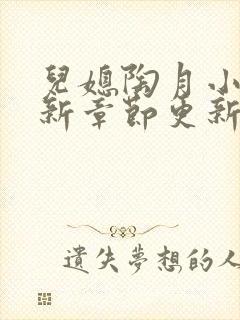 兒媳陶月小
新章節更新
遺失夢想的人